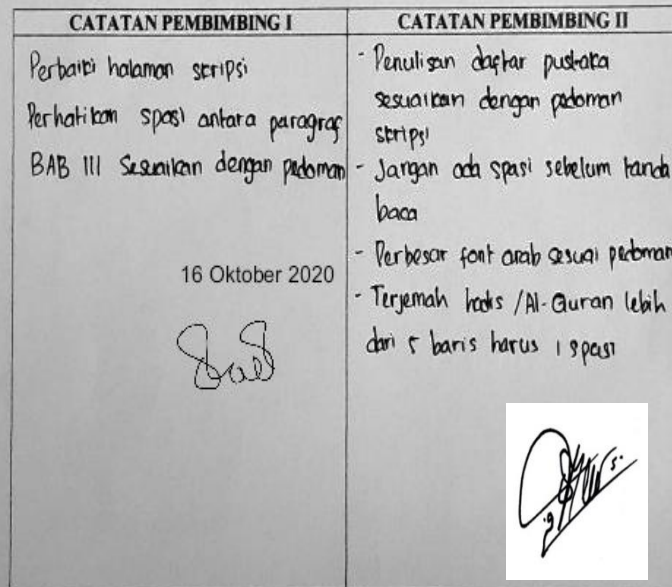 CATATAN PEMBIMBING I
Perbaiki halaman skripsi
Perhatikan spasi antara paragraf
BAB III Sesuaikan dengan pedoman
16 Oktober 2020
CATATAN PEMBIMBING II
- Penulisan daftar pustaka
sesuaikan dengan pedoman
skripsi
- Jangan ada spasi sebelum tanda
baca
- Perbesar font arab sesuai pedoman
- Terjemah hadis /Al-Quran lebih
dari 5 baris harus 1 spasi